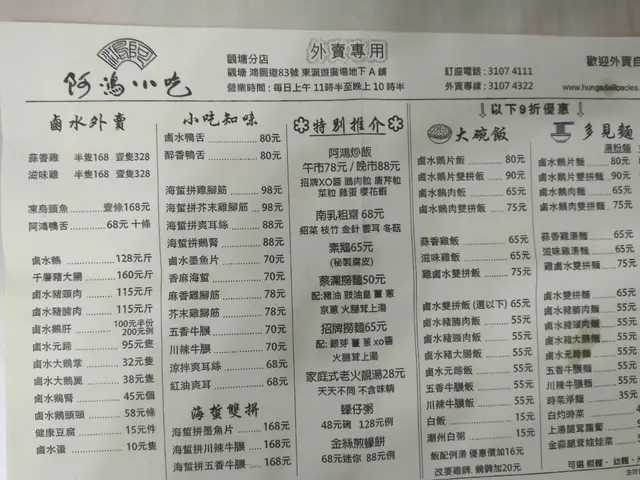 阿鴻小吃
觀塘分店
觀塘 鴻圖道83號 東瀛遊廣場地下A舖
營業時間 : 每日上午 11時半至晚上 10時半
外賣專用
訂座電話 : 3107 4111
外賣專線 : 3107 4322
歡迎外賣自
www.hungsdelicacies.c
滷水外賣
蒜香雞 半隻168 壹隻328
滋味雞 半隻168 壹隻328
凍烏頭魚 壹條168元
阿鴻鴨舌 68元 十條
滷水鵝 128元斤
千層豬大腸 160元斤
滷水豬頭肉 115元斤
滷水豬腩肉 115元斤
滷水鵝肝 100元半份
200元例
滷水元蹄 95元隻
滷水大鵝掌 32元隻
滷水大鵝翼 38元隻
滷水鵝腎 45元個
滷水鵝頭頭 58元條
健康豆腐 15元件
滷水蛋 10元隻
小吃知味
滷水鴨舌 80元
醉香鴨舌 80元
海蜇拼雞腳筋 98元
海蜇拼芥末雞腳筋 98元
海蜇拼爽耳絲 88元
海蜇拼鵝腎 88元
滷水墨魚片 70元
香麻海蜇 70元
麻香雞腳筋 78元
芥末雞腳筋 78元
五香牛𦟌 70元
川辣牛𦟌 70元
涼拌爽耳絲 68元
紅油爽耳 68元
海蜇雙拼
海蜇拼墨魚片 168元
海蜇拼川辣牛𦟌 168元
海蜇拼五香牛𦟌 168元
特別推介
阿鴻炒飯
午市78元 / 晚市88元
招牌XO醬 鵝肉粒 唐芹粒
菜粒 雞蛋 櫻花蝦
南乳粗齋 68元
紹菜 枝竹 金針 雲耳 冬菇
素鵝65元
(秘製腐皮)
蔡瀾撈麵50元
配:豬油 豉油皇 薑 蔥
京蔥 火腿茸上湯
招牌撈麵65元
配: 銀芽 薑 蔥 xo醬
火腿茸上湯
家庭式老火靚湯28元
天天不同 不含味精
蠔仔粥
48元碗 128元例
金絲煎蠔餅
68元迷你 88元例
以下9折優惠
大碗飯
滷水鵝片飯 80元
滷水鵝片雙拼飯 90元
滷水鵝肉飯 65元
滷水鵝肉雙拼飯 75元
蒜香雞飯 65元
滋味雞飯 65元
雞滷水雙拼飯 75元
滷水雙拼飯 (選以下) 65元
滷水豬腩肉飯 55元
滷水豬頭肉飯 55元
滷水豬大腸飯 55元
滷水元蹄飯 55元
五香牛𦟌飯 55元
川辣牛𦟌飯 55元
白飯 15元
潮州白粥 15元
飯配例湯 優惠價加16元
改要雞髀, 鵝髀加20元
多見麵
湯粉麵
滷水鵝片麵 80元
滷水鵝片雙拼麵 90元
滷水鵝肉麵 65元
滷水鵝肉雙拼麵 75元
蒜香雞湯麵 65元
滋味雞湯麵 65元
雞滷水雙拼麵 75元
滷水雙拼麵 65元
滷水豬腩肉麵 55元
滷水豬頭肉麵 55元
滷水豬大腸麵 55元
滷水元蹄麵 55元
五香牛𦟌麵 55元
川辣牛𦟌麵 55元
時菜淨麵 35元
白灼時菜
上湯鬆茸蘿蔔
金蒜腿茸娃娃菜
可選 粗麵、幼麵